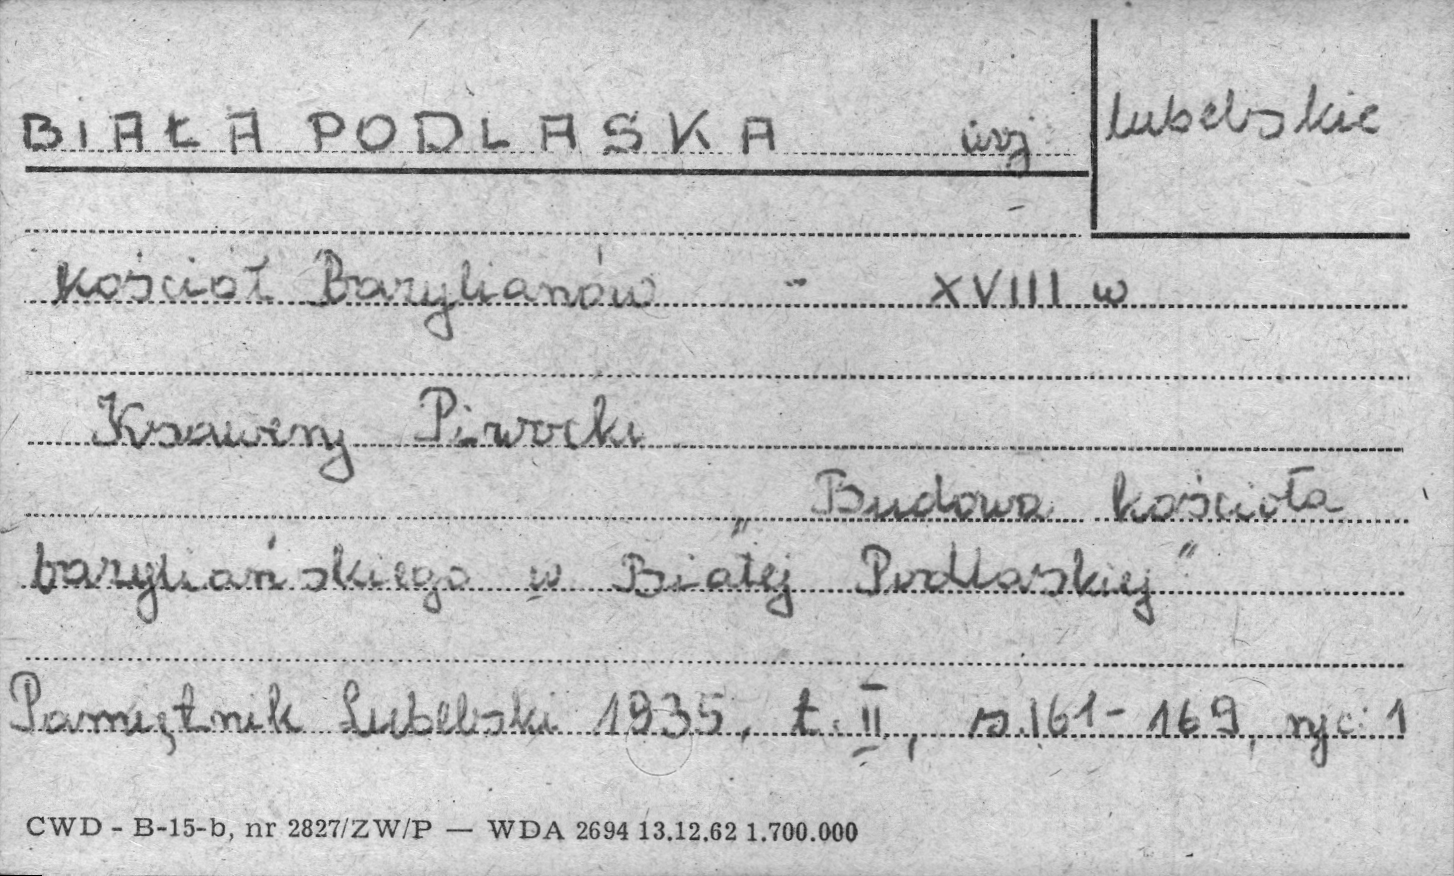 BIAŁA PODLASKA
lubelskie
kościół Bazylianów - XVIII w
Ksawery Piwocki
„ Budowa kościoła
bazyliańskiego w Białej Podlaskiej"
Pamiętnik Lubelski 1935, t. II, s. 161-169, ryc 1
CWD - B-15-b, nr 2827/ZW/P — WDA 2694 13.12.62 1.700.000